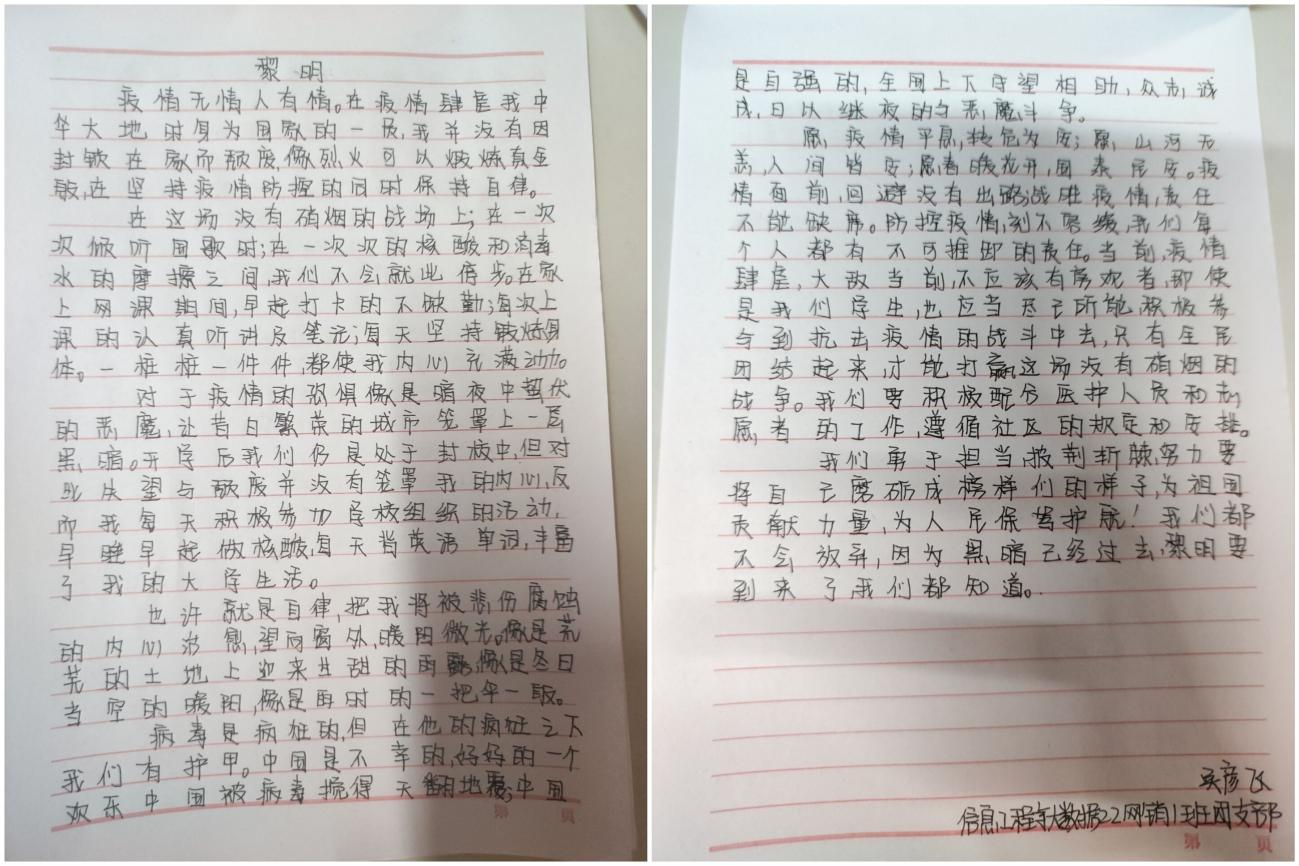 黎明
疫情无情人有情。在疫情肆虐我中
华大地时身为国家的一员,我并没有因
封锁在家而颓废,像烈火可以煅炼真金
般,在坚持疫情防控的同时保持自律。
在这场没有硝烟的战场上;在一次
次倾听国歌时;在一次次的核酸和消毒
水的摩擦之间,我们不会就此停步。在家
上网课期间,早起打卡的不缺勤;每次上
课的认真听讲及笔记;每天坚持锻炼身
体。一桩桩一件件,都使我内心充满动力。
对于疫情的恐惧像是暗夜中蛰伏
的恶魔,让昔日繁荣的城市笼罩上一层
黑暗。开学后我们仍是处于封校中,但对
此失望与颓废并没有笼罩我的内心,反
而我每天积极参加学校组织的活动,
早晚早起做核酸,每天背英语单词,丰富
了我的大学生活。
也许就是自律,把我将被悲伤腐蚀
的内心治愈,望向窗外,暖阳微光。像是荒
芜的土地上迎来甘甜的雨露,像是冬日
当空的暖阳,像是雨时的一把伞一般。
病毒是疯狂的,但在他的疯狂之下
我们有护甲。中国是不幸的,好好的一个
欢乐中国被病毒搅得天翻地覆;中国
是自强的,全国上下守望相助,众志成
成,日以继夜的与恶魔斗争。
愿,疫情平息,转危为安;愿,山河无
恙,人间皆安;愿春暖花开,国泰民安。疫
情面前,回避没有出路;战胜疫情,责任
不能缺席。防控疫情,刻不容缓,我们每
个人都有不可推卸的责任。当前,疫情
肆虐,大敌当前,不应该有旁观者,即使
是我们学生,也应当尽己所能,积极参
与到抗击疫情的战斗中去,只有全民
团结起来,才能打赢这场没有硝烟的
战争。我们要积极配合医护人员和志
愿,者的工作,遵循社区的规定和安排。
我们勇于担当,披荆斩棘,努力要
将自己磨砺成榜样们的样子,为祖国
贡献力量,为人民保驾护航!我们都
不会放弃,因为黑暗已经过去,黎明要
到来了我们都知道。
吴彦飞
信息工程与大数据22网销1班团支部
第 页
第 页